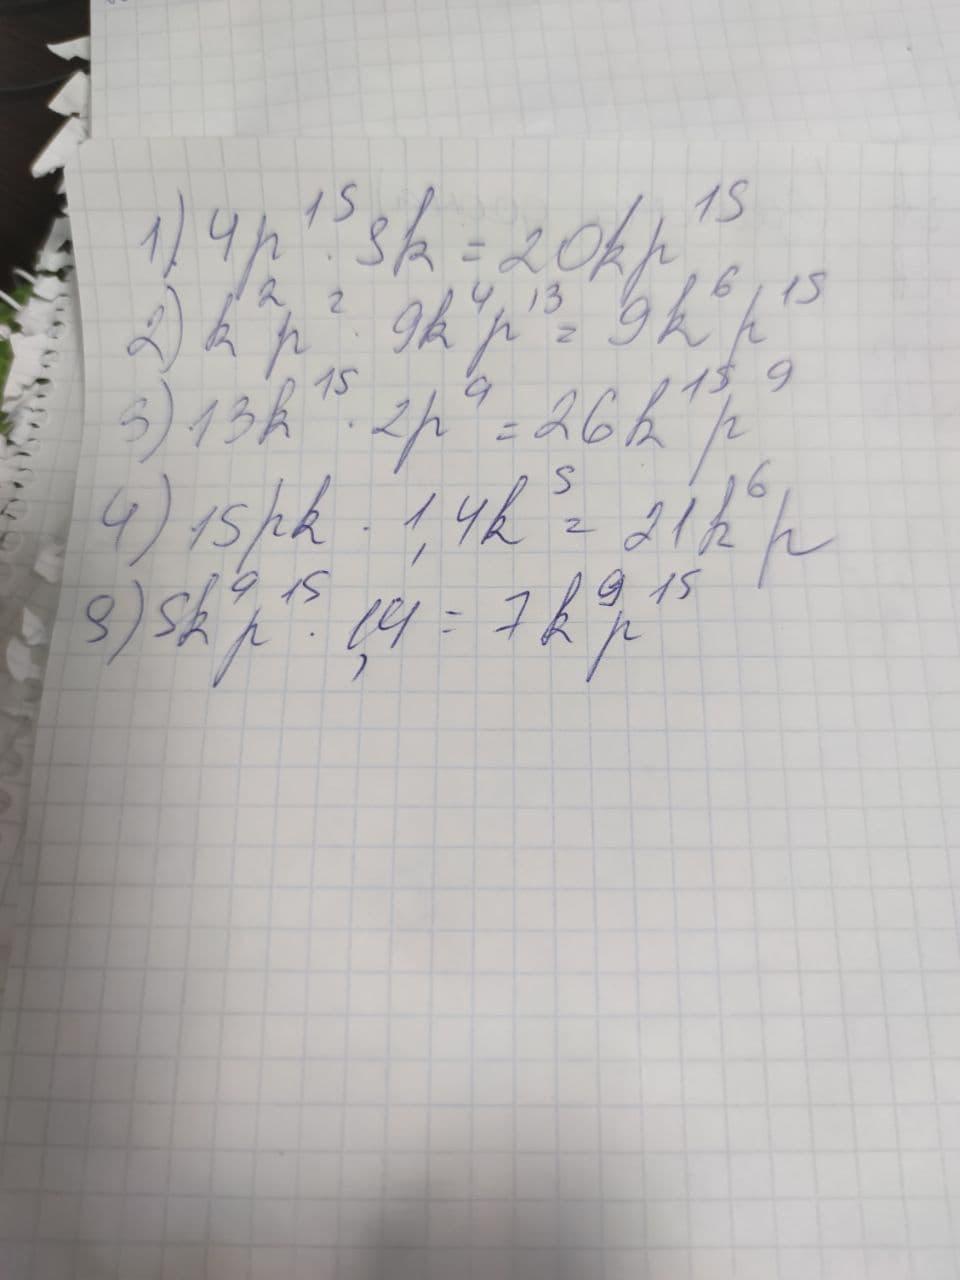 1) 4p¹⁵ · 5k = 20kp¹⁵
2) k²p² · 9k⁴p¹³ = 9k⁶p¹⁵
3) 13k¹⁵ · 2p⁹ = 26k¹⁵p⁹
4) 15pk · 1,4k⁵ = 21k⁶p
5) 5k⁹p¹⁵ · 1,4 = 7k⁹p¹⁵